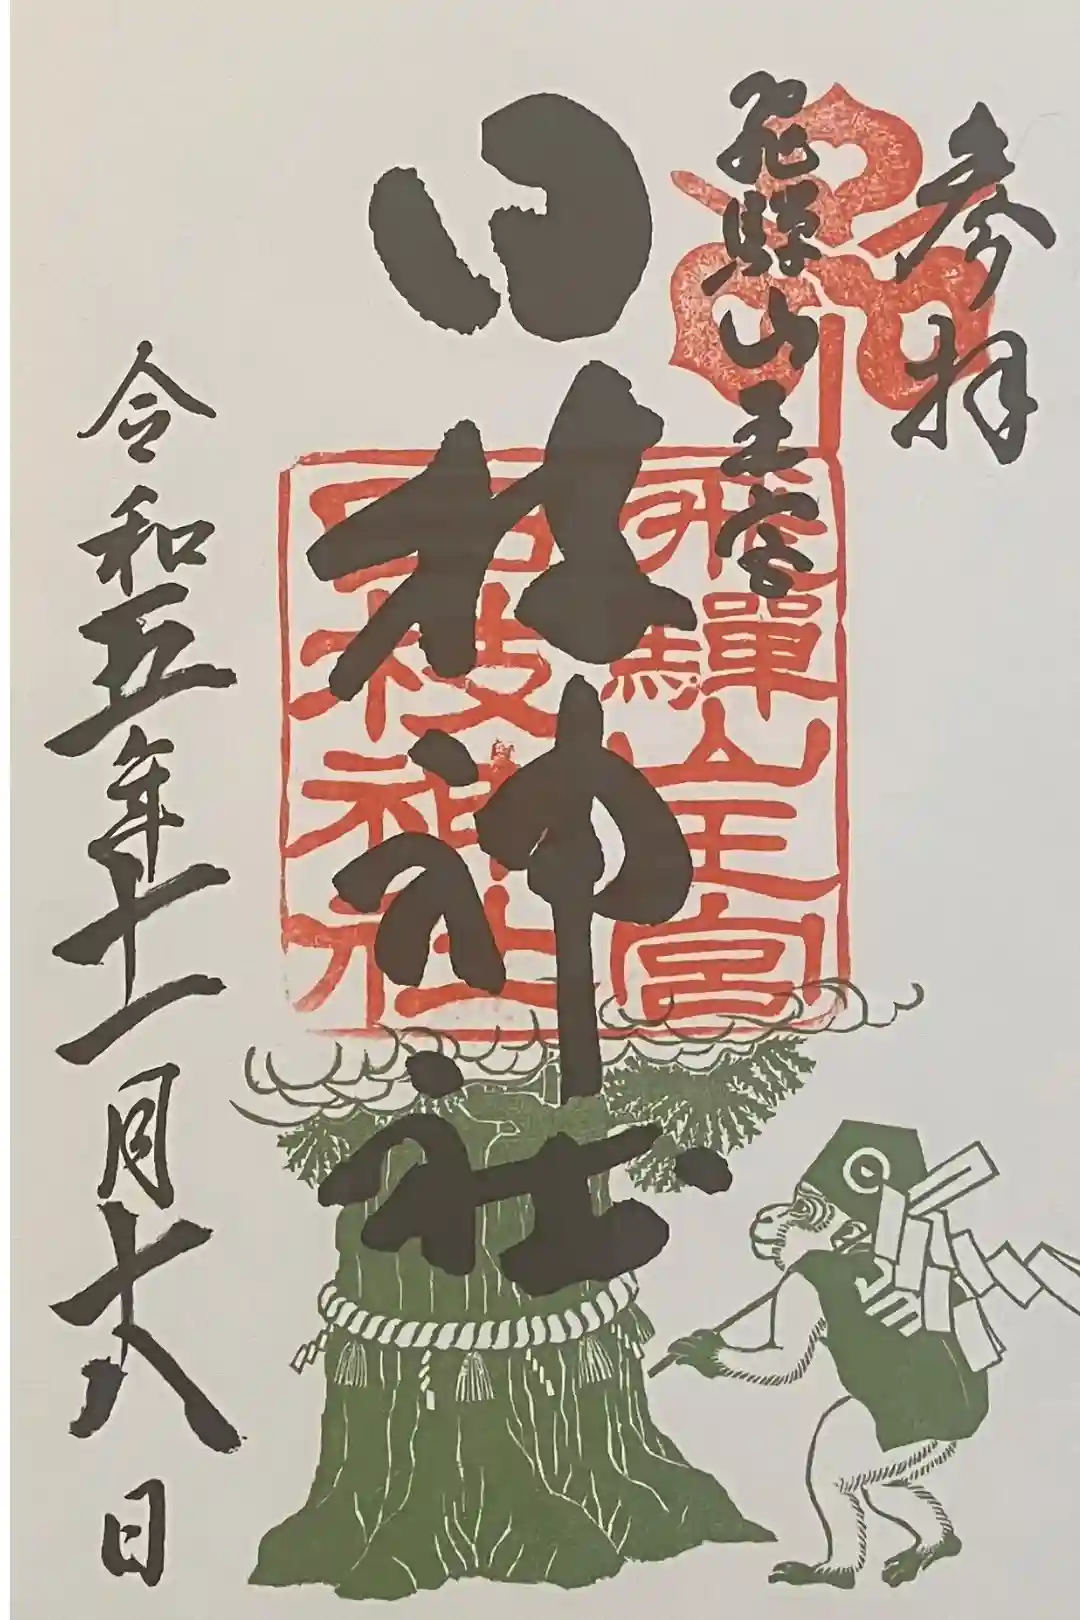 参拝
飛騨山王宮
日枝神社
飛驒山王宮
日枝神社
令和五年十一月十八日